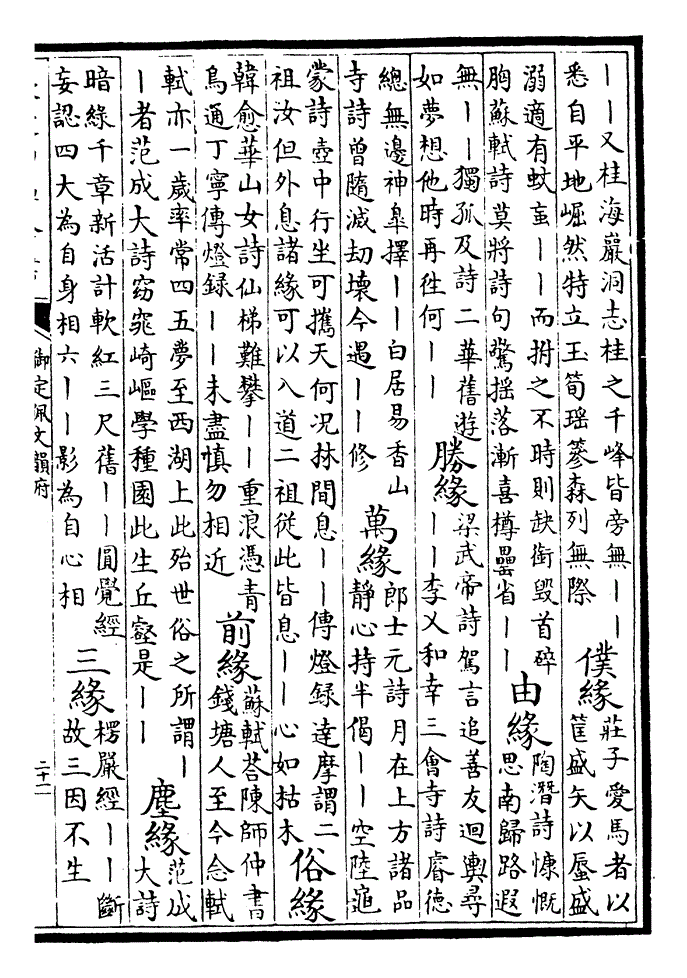 丨丨又桂海巖洞志桂之千峰皆旁無丨丨
悉自平地崛然特立玉筍瑤篸森列無際
僕緣
莊子愛馬者以
筐盛矢以蜃盛
溺適有蚊䖟丨丨而拊之不時則缺銜毁首碎
胸蘇軾詩莫將詩句驚摇落漸喜樽罍省丨丨
由緣
陶潛詩慷慨
思南歸路遐
無丨丨獨孤及詩二華舊遊
如夢想他時再徃何丨丨
勝緣
梁武帝詩駕言追善友迴輿尋
丨丨李乂和幸三會寺詩睿德
總無邊神臯擇丨丨白居易香山
寺詩曾隨滅劫壞今遇丨丨修
萬緣
郎士元詩月在上方諸品
静心持半偈丨丨空陸龜
蒙詩壺中行坐可攜天何况林間息丨丨傳燈録達摩謂二
祖汝但外息諸緣可以入道二祖從此皆息丨丨心如枯木
俗緣
韓愈華山女詩仙梯難攀丨丨重浪憑青
鳥通丁寧傳燈録丨丨未盡慎勿相近
前緣
蘇軾荅陳師仲書
錢塘人至今念軾
軾亦一歲率常四五夢至西湖上此殆世俗之所謂丨
丨者范成大詩窈窕崎嶇學種園此生丘壑是丨丨
塵緣
范成
大詩
暗緑千章新活計軟紅三尺舊丨丨圓覺經
妄認四大為自身相六丨丨影為自心相
三緣
楞嚴經丨丨斷
故三因不生
御定佩文韻府
二十一